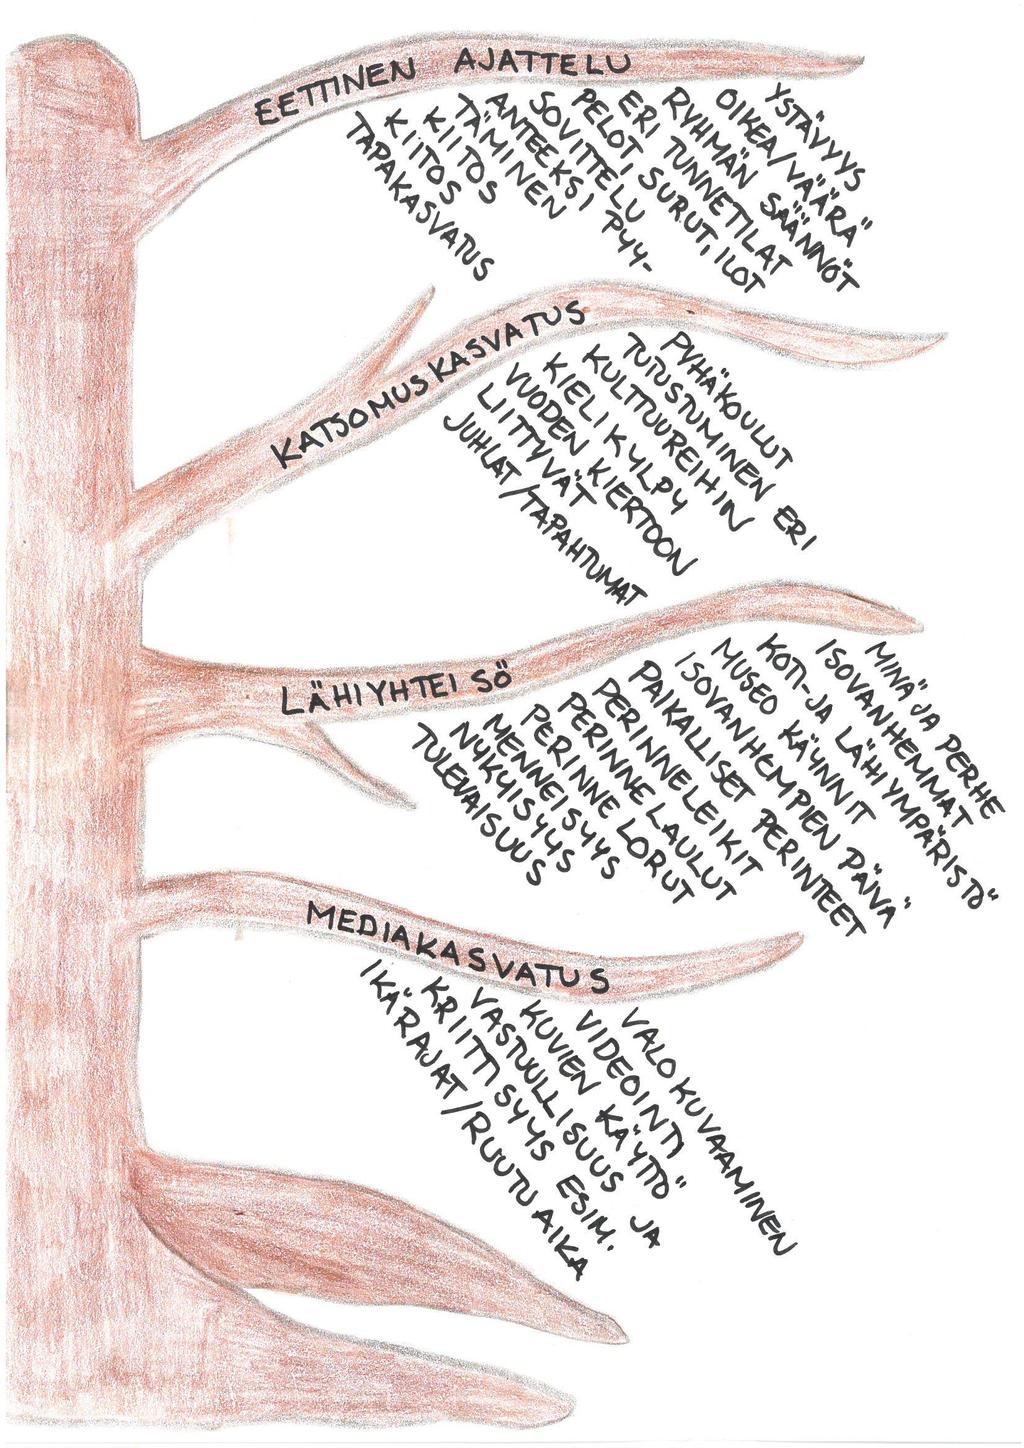 EETTINEN AJATTELU
YSTÄVYYS
OIKEA/VÄÄRÄ
RYHMÄN SÄÄNNÖT
ERI TUNNETILAT
PELOT, SURUT, ILOT
SOVITTELU
ANTEEKSI PYY-
TÄMINEN
KIITOS
KIITOS
TAPAKASVATUS
KATSOMUSKASVATUS
PYHÄKOULUT
TUTUSTUMINEN ERI
KULTTUUREIHIN
KIELIKYLPY
VUODEN KIERTOON
LIITTYVÄT
JUHLAT/TAPAHTUMAT
LÄHIYHTEISÖ
MINÄ JA PERHE
ISOVANHEMMAT
KOTI- JA LÄHIYMPÄRISTÖ
MUSEO KÄYNNIT
ISOVANHEMPIEN PÄIVÄ
PAIKALLISET PERINTEET
PERINNELEIKIT
PERINNELAULUT
PERINNE LORUT
MENNEISYYS
NYKYISYYS
TULEVAISUUS
MEDIAKASVATUS
VALOKUVAAMINEN
VIDEOINTI
KUVIEN KÄYTTÖ
VASTUULLISUUS JA
KRIITTISYYS ESIM.
IKÄRAJAT/RUUTUAIKA